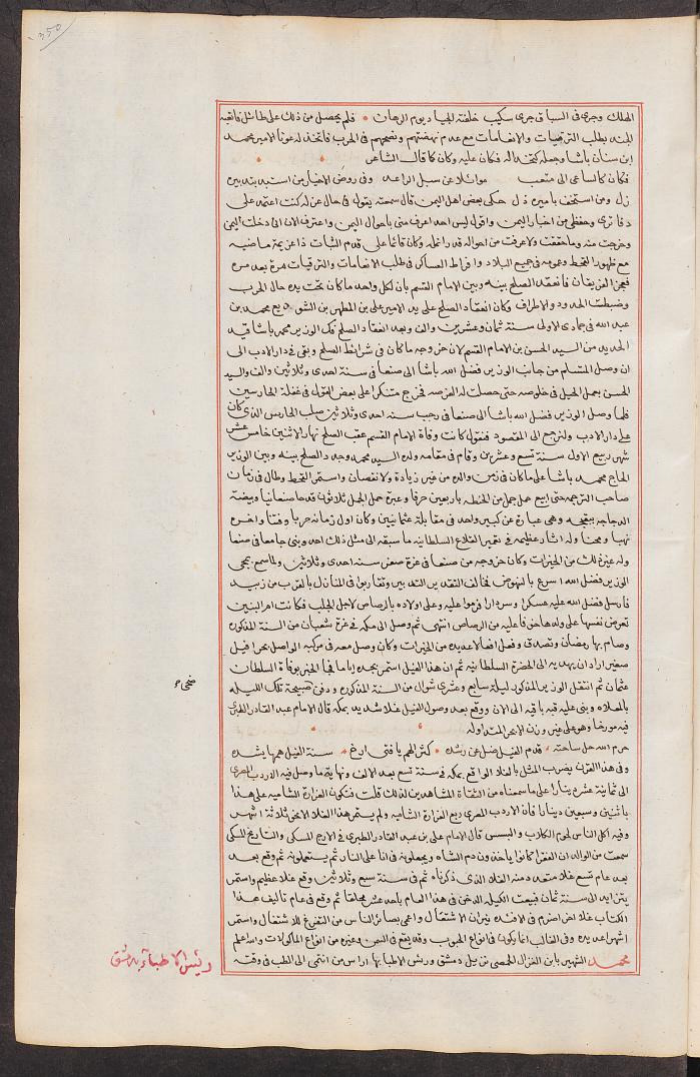 350
الملك وجرى فى السباق جرى سكيب خلفته الجياد يوم الرهان فلم يحصل من ذلك على طائل فاتفقه
الجند بطلب الترقيات والانعامات مع عدم نهضتهم ونصحهم فى الحرب فاتخذ له عونا الامير محمد
ابن سنان باشا وجعله كتخداله فكان عليه وكان كما قال الشاعر
فكان كالساعى الى مثعب موائلا من سبل الراعد وفى روض الاخيار من استبد بتدبيره
زل ومن استخف باميره ذل حكى بعض اهل اليمن قال سمعته يقول فى حال عزله كنت اعتمد على
دفاترى وحفظى من اخبار اليمن واقول ليس احد اعرف منى باحوال اليمن واعترف الان انى دخلت اليمن
وخرجت منه وما حققت ولا عرفت من احواله قدر انمله وكان قائما على قدم الثبات ذا عزيمة ماضيه
مع ظهور القحط وعمومه فى جميع البلاد وافراط العساكر فى طلب الانعامات والترقيات مرة بعد مره
فعجز الفريقان فانعقد الصلح بينه وبين الامام القسم بان لكل واحد ما كان تحت يده حال الحرب
وضبطت الحدود والاطراف وكان انعقاد الصلح على يد الامير على بن المطهر بن الشويع محمد بن
عبد الله فى جمادى الاولى سنة ثمان وعشرين والف وبعد انعقاد الصلح فك الوزير محمد باشا قيد
الحديد من السيد الحسن بن الامام القسم لان خروجه ما كان فى شرائط الصلح وبقى فى دار الادب الى
ان وصل المتسلم من جانب الوزير فضل الله باشا الى صنعا فى سنة احدى وثلاثين والف والسيد
الحسن يعمل الحيل فى خلوصه حتى حصلت له الفرصه فخرج متنكرا على بعض القول فى غفلة الحارسين
فلما وصل الوزير فضل الله باشا الى صنعا فى رجب سنه احدى وثلاثين صلب الحارس الذى كان
على دار الادب ولنرجع الى المقصود فنقول كانت وفاة الامام القسم عقب الصلح نهار الاثنين خامس عشر
شهر ربيع الاول سنة تسع وعشرين وقام فى مقامه ولده السيد محمد وجدد الصلح بينه وبين الوزير
الحاج محمد باشا على ما كان فى زمن والده من غير زيادة ولا نقصان واستمر القحط وطال فى زمان
صاحب الترجمه حتى ابيع حمل جمل من الحنطه باربعين حرفا وعبرة حمل الجمل ثلاثون قدحا صنعانيا وبيضة
الدجاجه ببقجه وهى عبارة عن كبير واحد فى مقابلة عثمانيين وكان اول زمانه حربا وفتنا واخره
نهبا ومحنا وله اثار عظيمه فى تعمير القلاع السلطانيه ما سبقه الى مثل ذلك احد وبنى جامعا فى صنعا
وله غير ذلك من الخيرات وكان خروجه من صنعا فى غرة صفر سنه احدى وثلاثين ولما سمع بمجى
الوزير فضل الله اسرع بالنهوض فخالف التقدير التدبير وتقاربوا فى المنازل بالقرب من زبيد
فارسل فضل الله عليه عسكرا وسردارا فرموا عليه وعلى اولاده بالرصاص لاجل الجلب فكانت ام البنين
تعرض نفسها على ولدها خوفا عليه من الرصاص انتهى ثم وصل الى مكه فى غرة شعبان من السنة المذكوره
وصام بها رمضان وتصدق وفعل افعالا عديده من الخيرات وكان وصل معه فى مركبه الواصل بحرا فيل
صغير اراد ان يهديه الى الحضرة السلطانيه ثم ان هذا الفيل استمر بجده اياما فجا الخبر بوفاة السلطان
عثمان ثم انتقل الوزير المذكور ليلة سابع وعشرى شوال من السنة المذكوره ودفن صبيحة تلك الليله
بالمعلاه وبنى عليه قبه باقيه الى الان ووقع بعد وصول الفيل غلا شديد بمكه قال الامام عبد القادر الطبرى
فيه مورخا وهو على غير وزن الابحر المتداوله
حرم الله حل ساحته قدم الفيل ضل عن رشده كثر الهم يا فتى ارخ سنة الفيل همها بشده
وفى هذا القرن يضرب المثل بالغلاء الواقع بمكه فى سنة تسع بعد الالف ونهاية ما وصل فيه الاردب المصرى
الى ثمانية عشر دينارا على ما سمعناه من الثقاة المشاهدين لذلك قلت فتكون الغرارة الشاميه على هذا
باثنين وسبعين دينارا فان الاردب المصرى ربع الغرارة الشاميه ولم يستمر هذا الغلا الا نحو ثلاثة اشهر
وفيه اكل الناس لحوم الكلاب والبسس قال الامام على بن عبد القادر الطبرى فى الارج المسكى والتاريخ المكى
سمعت من الوالد ان الفقرا كانوا ياخذون دم الشاه ويجعلونه فى انا على النار ثم يستعملونه ثم وقع بعد
بعد عام تسع غلا متعدد منه الغلاء الذى ذكرناه ثم فى سنة سبع وثلاثين وقع غلا عظيم واستمر
يتزايد الى سنة ثمان فبيعت الكيله الدخن فى هذا العام باحد عشر محلقا ثم وقع فى عام تاليف هذا
الكتاب غلا اضرم فى الافئده نيران الاشتعال واعمى بصائر الناس من التفرغ للاشتغال واستمر
اشهرا عديده وفى الغالب انما يكون فى انواع الحبوب وقد يقع فى السمن وغيره من انواع الماكولات والله اعلم
محمد الشهير بابن الغزال الحمصى نزيل دمشق ورئيس الاطبا بها راس من انتمى الى الطب فى وقته
رئيس الاطباء بدمشق